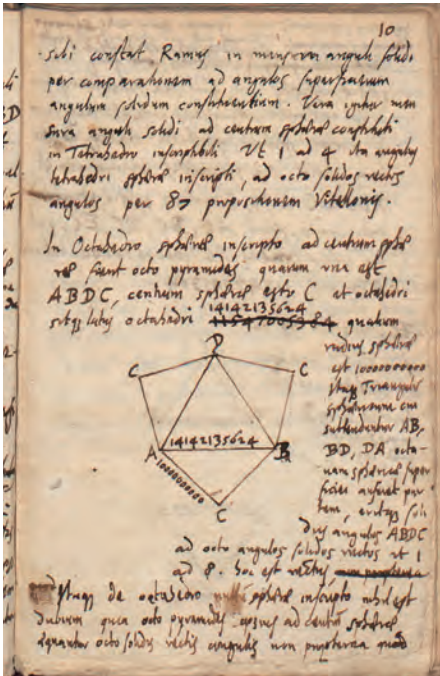 10
sibi constat Ramus in mensura anguli solidi
per comparationem ad angulos superficierum
angulum solidum constituentium. Vera igitur men
sura anguli solidi ad centrum sphæræ constituti
in Tetrahedro inscriptibili Vt 1 ad 4 ita angulus
tetrahedri sphæræ inscripti, ad octo solidos rectos
angulos per 87 propositionem Vitellonis.
In Octahedro sphæræ inscripto ad centrum sphæ
ræ, fient octo pyramides quarum una est
ABDC, centrum sphæræ esto C et octahedri
14142135624
latus octahedri 11547005384 qualium
radius sphæræ
est 10000000000
Itaq Triangulum
sphæricum cui
subtenduntur AB,
BD, DA octa-
vam sphæricæ super
ficiei aufert par
tem, eritq soli
dus angulus ABDC
ad octo angulos solidos rectos ut 1
ad 8. hoc est rectus,
D
C
C
14142135624
A
B
10000000000
C
Itaq de octahedro sphæræ inscripto nihil est
dubium quia octo pyramides ad centrum sphæræ
æquantur octo solidis rectis angulis non propterea quod